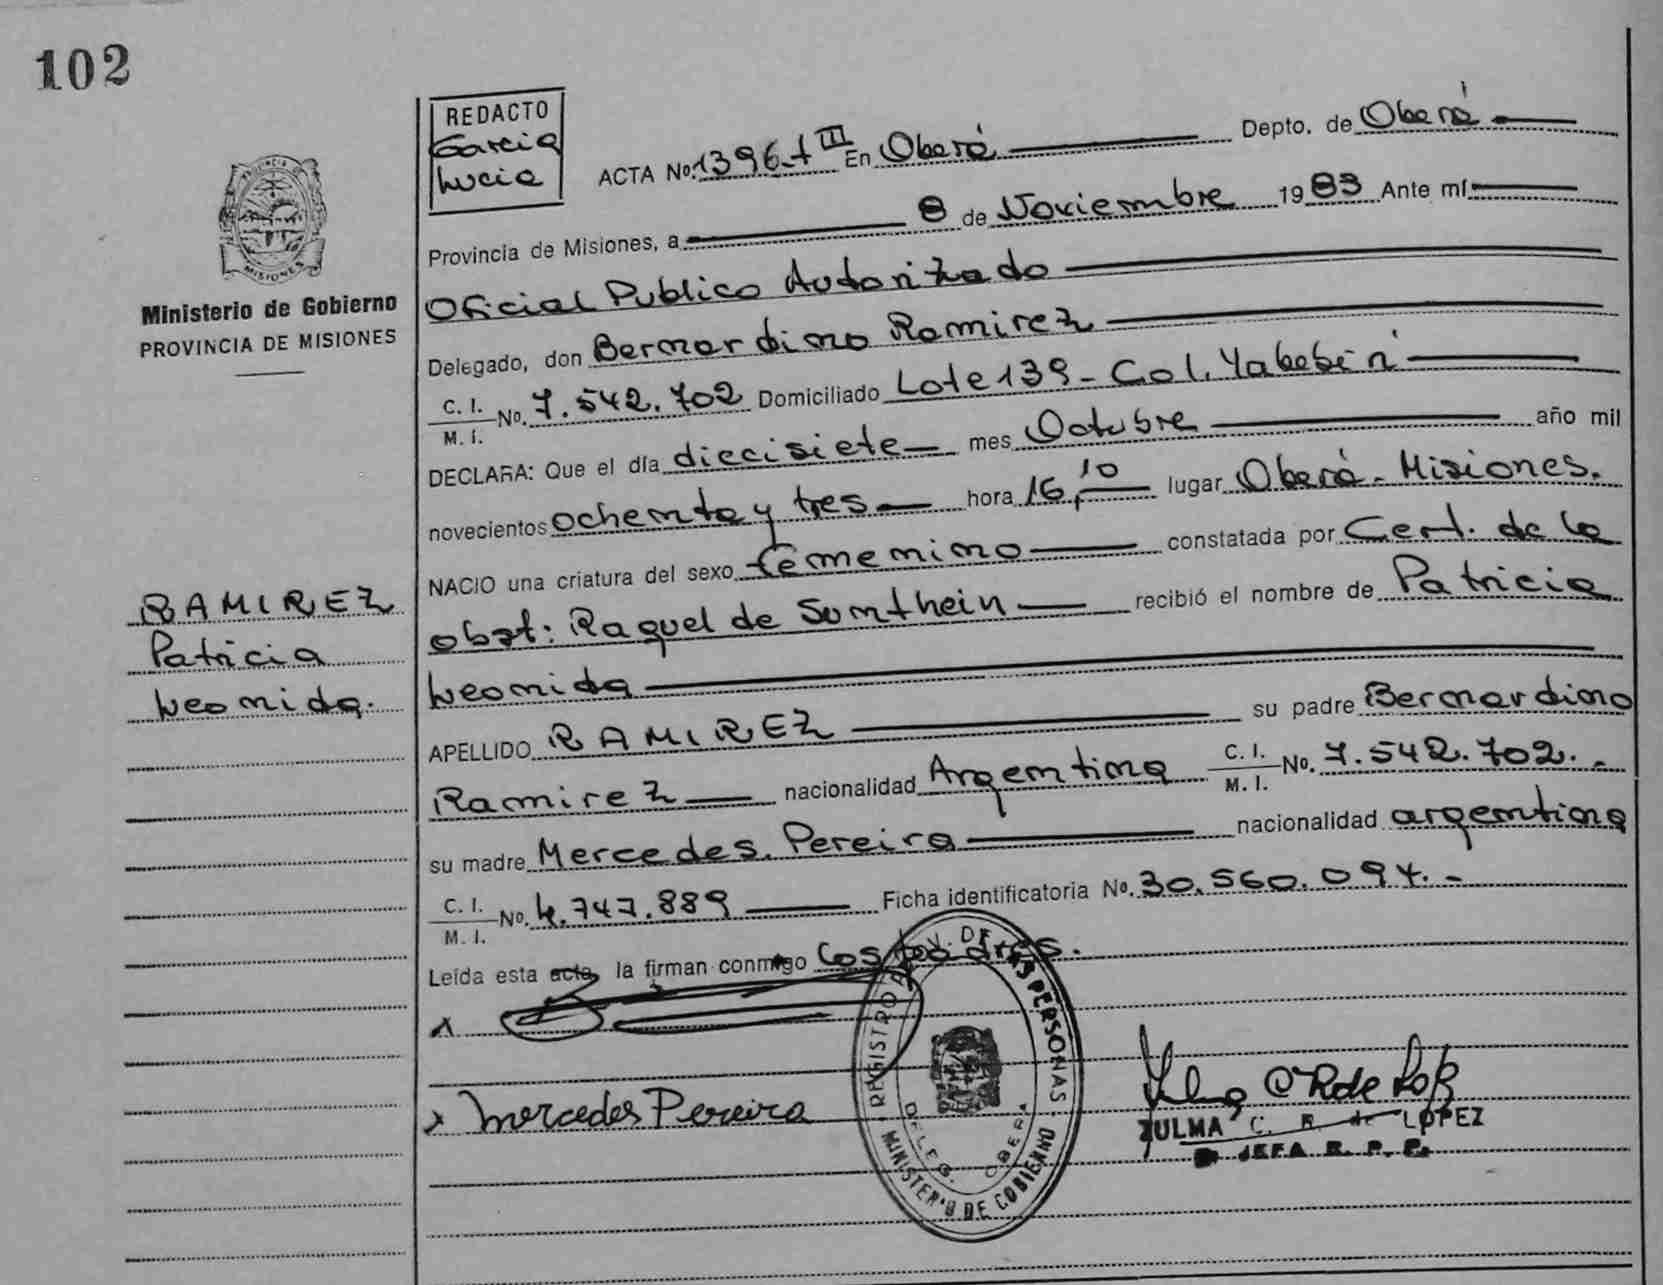 102
REDACTO
Garcia
Lucia
ACTA No. 1396-t III En Oberá Depto. de Oberá
Provincia de Misiones, a 8 de Noviembre 1983 Ante mí
MISIONES
Ministerio de Gobierno
PROVINCIA DE MISIONES
Oficial Publico Autorizado
Delegado, don Bernardino Ramirez
C. I. M. I. No. 7.542.702 Domiciliado Lote 139 - Col. Yabebiri
DECLARA: Que el día diecisiete mes Octubre año mil
novecientos ochenta y tres hora 16,10 lugar Oberá - Misiones.
NACIO una criatura del sexo femenino constatada por Cert. de la
obst: Raquel de Sumthein recibió el nombre de Patricia
Leonida
RAMIREZ
Patricia
Leonida.
APELLIDO RAMIREZ su padre Bernardino
Ramirez nacionalidad Argentina C. I. M. I. No. 7.542.702. -
su madre Mercedes. Pereira nacionalidad argentina
C. I. M. I. No. 4.747.889 Ficha identificatoria No. 30.560.094. -
Leída esta acta la firman conmigo los padres.
x
x Mercedes Pereira
REGISTRO PROV. DE LAS PERSONAS
DELEG. OBERA
MINISTERIO DE GOBIERNO
ZULMA C. R. de LOPEZ
JEFA R. P. P.